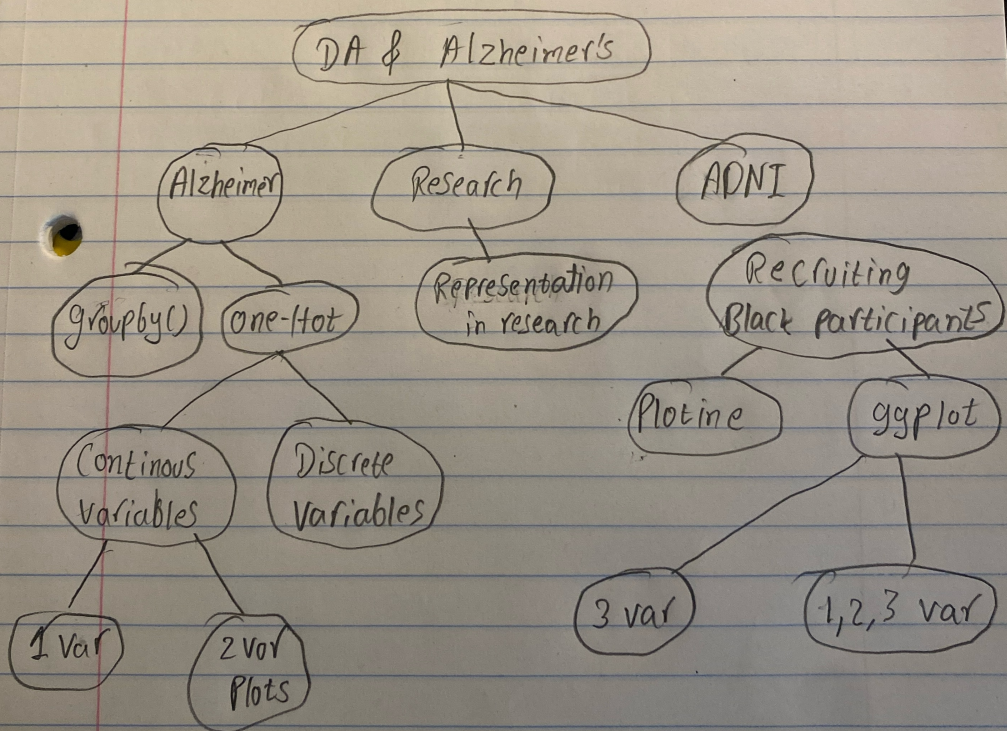 DA & Alzheimer's
Alzheimer
Research
ADNI
groupby()
one-Hot
Representation
in research
Recruiting
Black participants
Plotine
ggplot
Continous
variables
Discrete
variables
3 var
1,2,3 var
1 var
2 vor
Plots